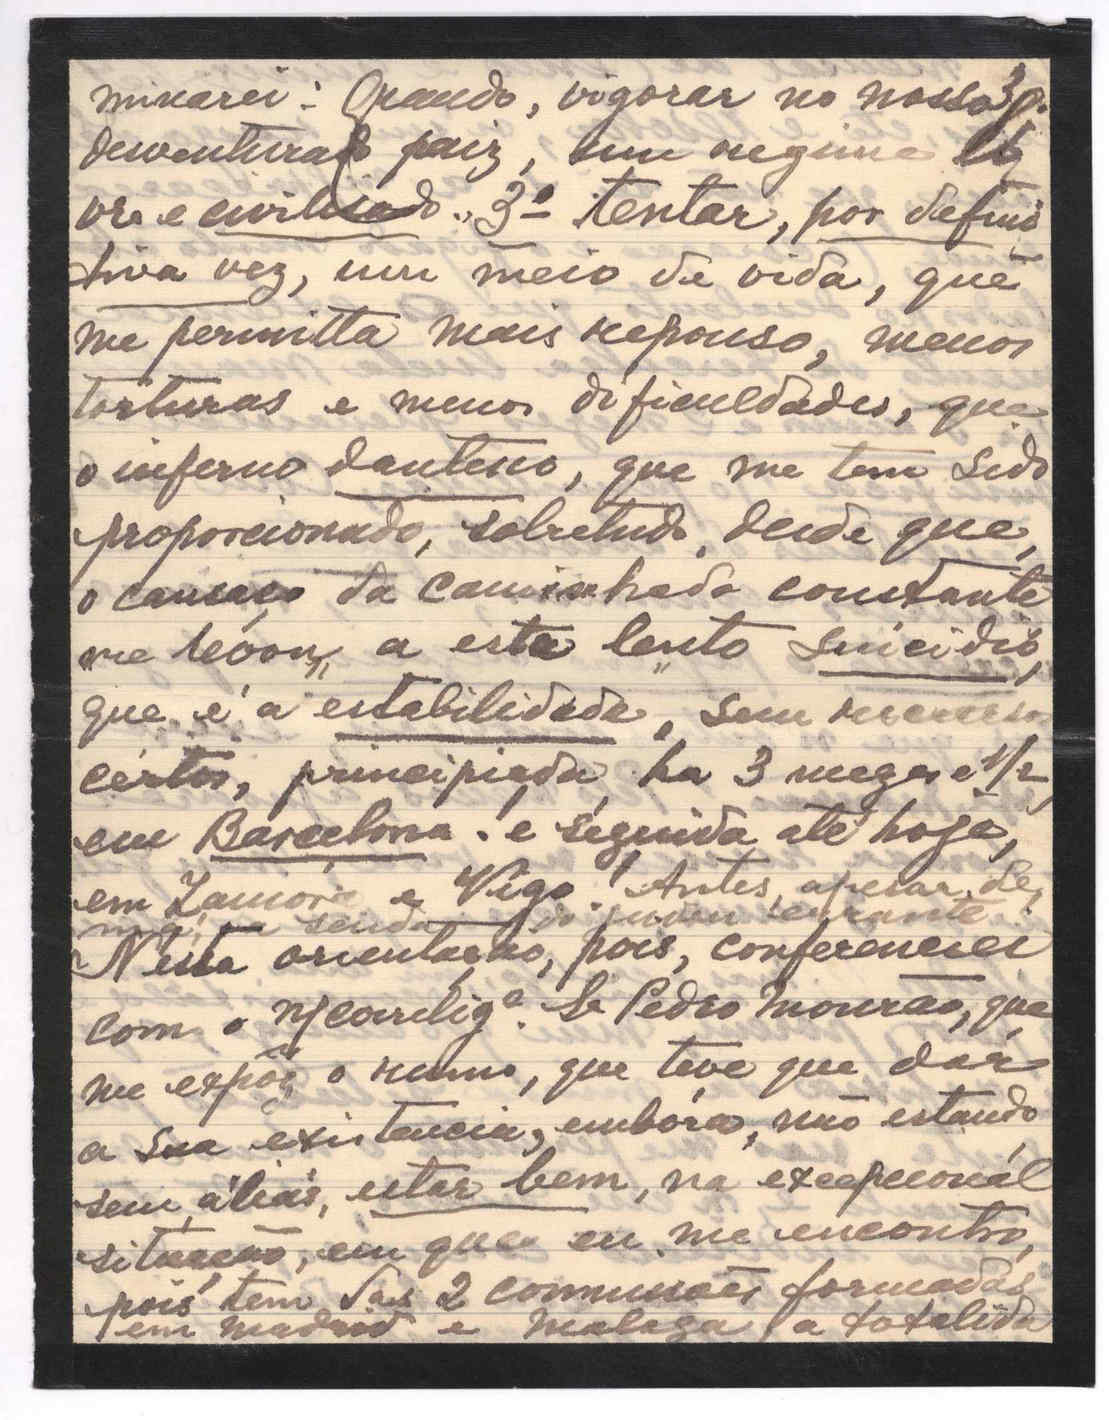 minarei: Quando, vigorar no nosso 3º
desventurado paiz, um regime li
vre e civilisado., 3º tentar, por defini
tiva vez, um meio de vida, que
me permitta mais repouso, menos
torturas e menos dificuldades, que
o inferno dantesco, que me tem sido
proporcionado, sobretudo, desde que,
o cansaço da caminhada constante
me levou, a este lento suicidio,
que é a estabilidade, sem recursos
certos, principiada ha 3 mezes e 1/2,
em Barcelona. e seguida até hoje,
em Zamora e Vigo! Antes, apesar de,
senda judeu errante
Nesta orientação, pois, conferenciei
com o n/ correligº. Sr Pedro Mourão, que
me expôz o rumo, que teve que dar
a sua existencia, embóra, não estando
sem, aliás, estar bem, na excepcional
situação, em que eu me encontro,
pois tem das 2 commissões formadas
em Madrid e Malaga a totalida